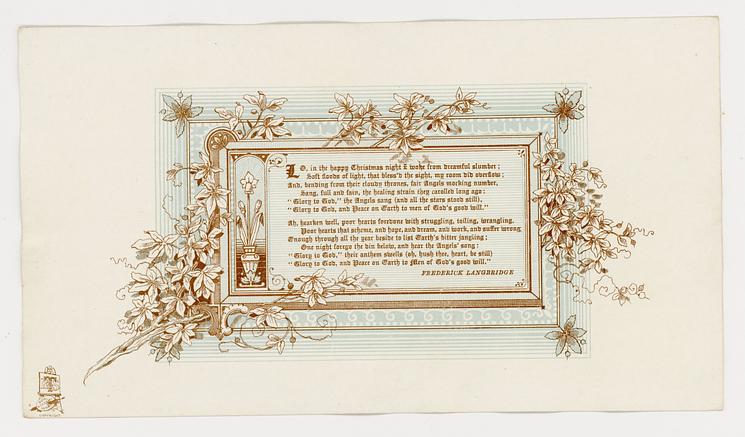 LO, in the happy Christmas night I woke from dreamful slumber;
Soft floods of light, that bless'd the sight, my room did overflow;
And, bending from their cloudy thrones, fair Angels mocking number,
Sang, full and fain, the healing strain they carolled long ago:
"Glory to God," the Angels sang (and all the stars stood still),
"Glory to God, and Peace on Earth to men of God's good will."
Ah, hearken well, poor hearts foredone with struggling, toiling, wrangling,
Poor hearts that scheme, and hope, and dream, and work, and suffer wrong
Enough through all the year beside to list Earth's bitter jangling;
One night forego the din below, and hear the Angels' song:
"Glory to God," their anthem swells (oh, hush thee, heart, be still)
"Glory to God, and Peace on Earth to Men of God's good will."
FREDERICK LANGBRIDGE